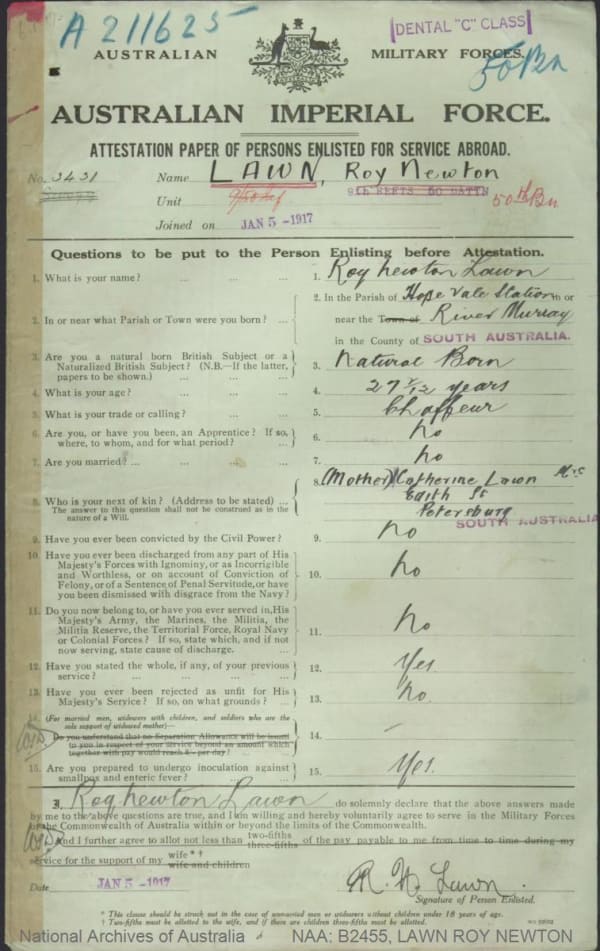 A 211625
DENTAL "C" CLASS
AUSTRALIAN MILITARY FORCES.
50 Bn
AUSTRALIAN IMPERIAL FORCE.
ATTESTATION PAPER OF PERSONS ENLISTED FOR SERVICE ABROAD.
No. 3431 Name LAWN, Roy Newton
Unit 9/50 9th REFTS 50 BATTN 50th Bn
Joined on JAN 5 -1917
Questions to be put to the Person Enlisting before Attestation.
1. What is your name? ... ... ... 1. Roy Newton Lawn
2. In or near what Parish or Town were you born? ... 2. In the Parish of Hope Vale Station in or
near the Town of River Murray
in the County of SOUTH AUSTRALIA.
3. Are you a natural born British Subject or a
Naturalized British Subject? (N.B.—If the latter,
papers to be shown.) ... ... 3. Natural Born
4. What is your age? ... ... ... 4. 27 7/12 years
5. What is your trade or calling? ... ... 5. Chaffeur
6. Are you, or have you been, an Apprentice? If so,
where, to whom, and for what period? ... 6. No
7. Are you married? ... ... ... 7. No
8. Who is your next of kin? (Address to be stated) ...
The answer to this question shall not be construed as in the
nature of a Will.
8. (Mother) Catherine Lawn Mrs
Edith St
Petersburg
SOUTH AUSTRALIA
9. Have you ever been convicted by the Civil Power? 9. No
10. Have you ever been discharged from any part of His
Majesty's Forces with Ignominy, or as Incorrigible
and Worthless, or on account of Conviction of
Felony, or of a Sentence of Penal Servitude, or have
you been dismissed with disgrace from the Navy? 10. No
11. Do you now belong to, or have you ever served in, His
Majesty's Army, the Marines, the Militia, the
Militia Reserve, the Territorial Force, Royal Navy
or Colonial Forces? If so, state which, and if not
now serving, state cause of discharge. ... 11. No
12. Have you stated the whole, if any, of your previous
service? ... ... ... ... 12. Yes
13. Have you ever been rejected as unfit for His
Majesty's Service? If so, on what grounds? ... 13. No.
14. (For married men, widowers with children, and soldiers who are the
sole support of widowed mother)—
Do you understand that no Separation Allowance will be issued
to you in respect of your service beyond an amount which
together with pay would reach 8/- per day? ... 14. —
15. Are you prepared to undergo inoculation against
smallpox and enteric fever? ... ... 15. Yes.
I, Roy Newton Lawn do solemnly declare that the above answers made
by me to the above questions are true, and I am willing and hereby voluntarily agree to serve in the Military Forces
of the Commonwealth of Australia within or beyond the limits of the Commonwealth.
And I further agree to allot not less than two-fifths three-fifths of the pay payable to me from time to time during my
service for the support of my wife * † wife and children
Date JAN 5 -1917 R. N. Lawn.
Signature of Person Enlisted.
* This clause should be struck out in the case of unmarried men or widowers without children under 18 years of age.
† Two-fifths must be allotted to the wife, and if there are children three-fifths must be allotted.
National Archives of Australia NAA: B2455, LAWN ROY NEWTON